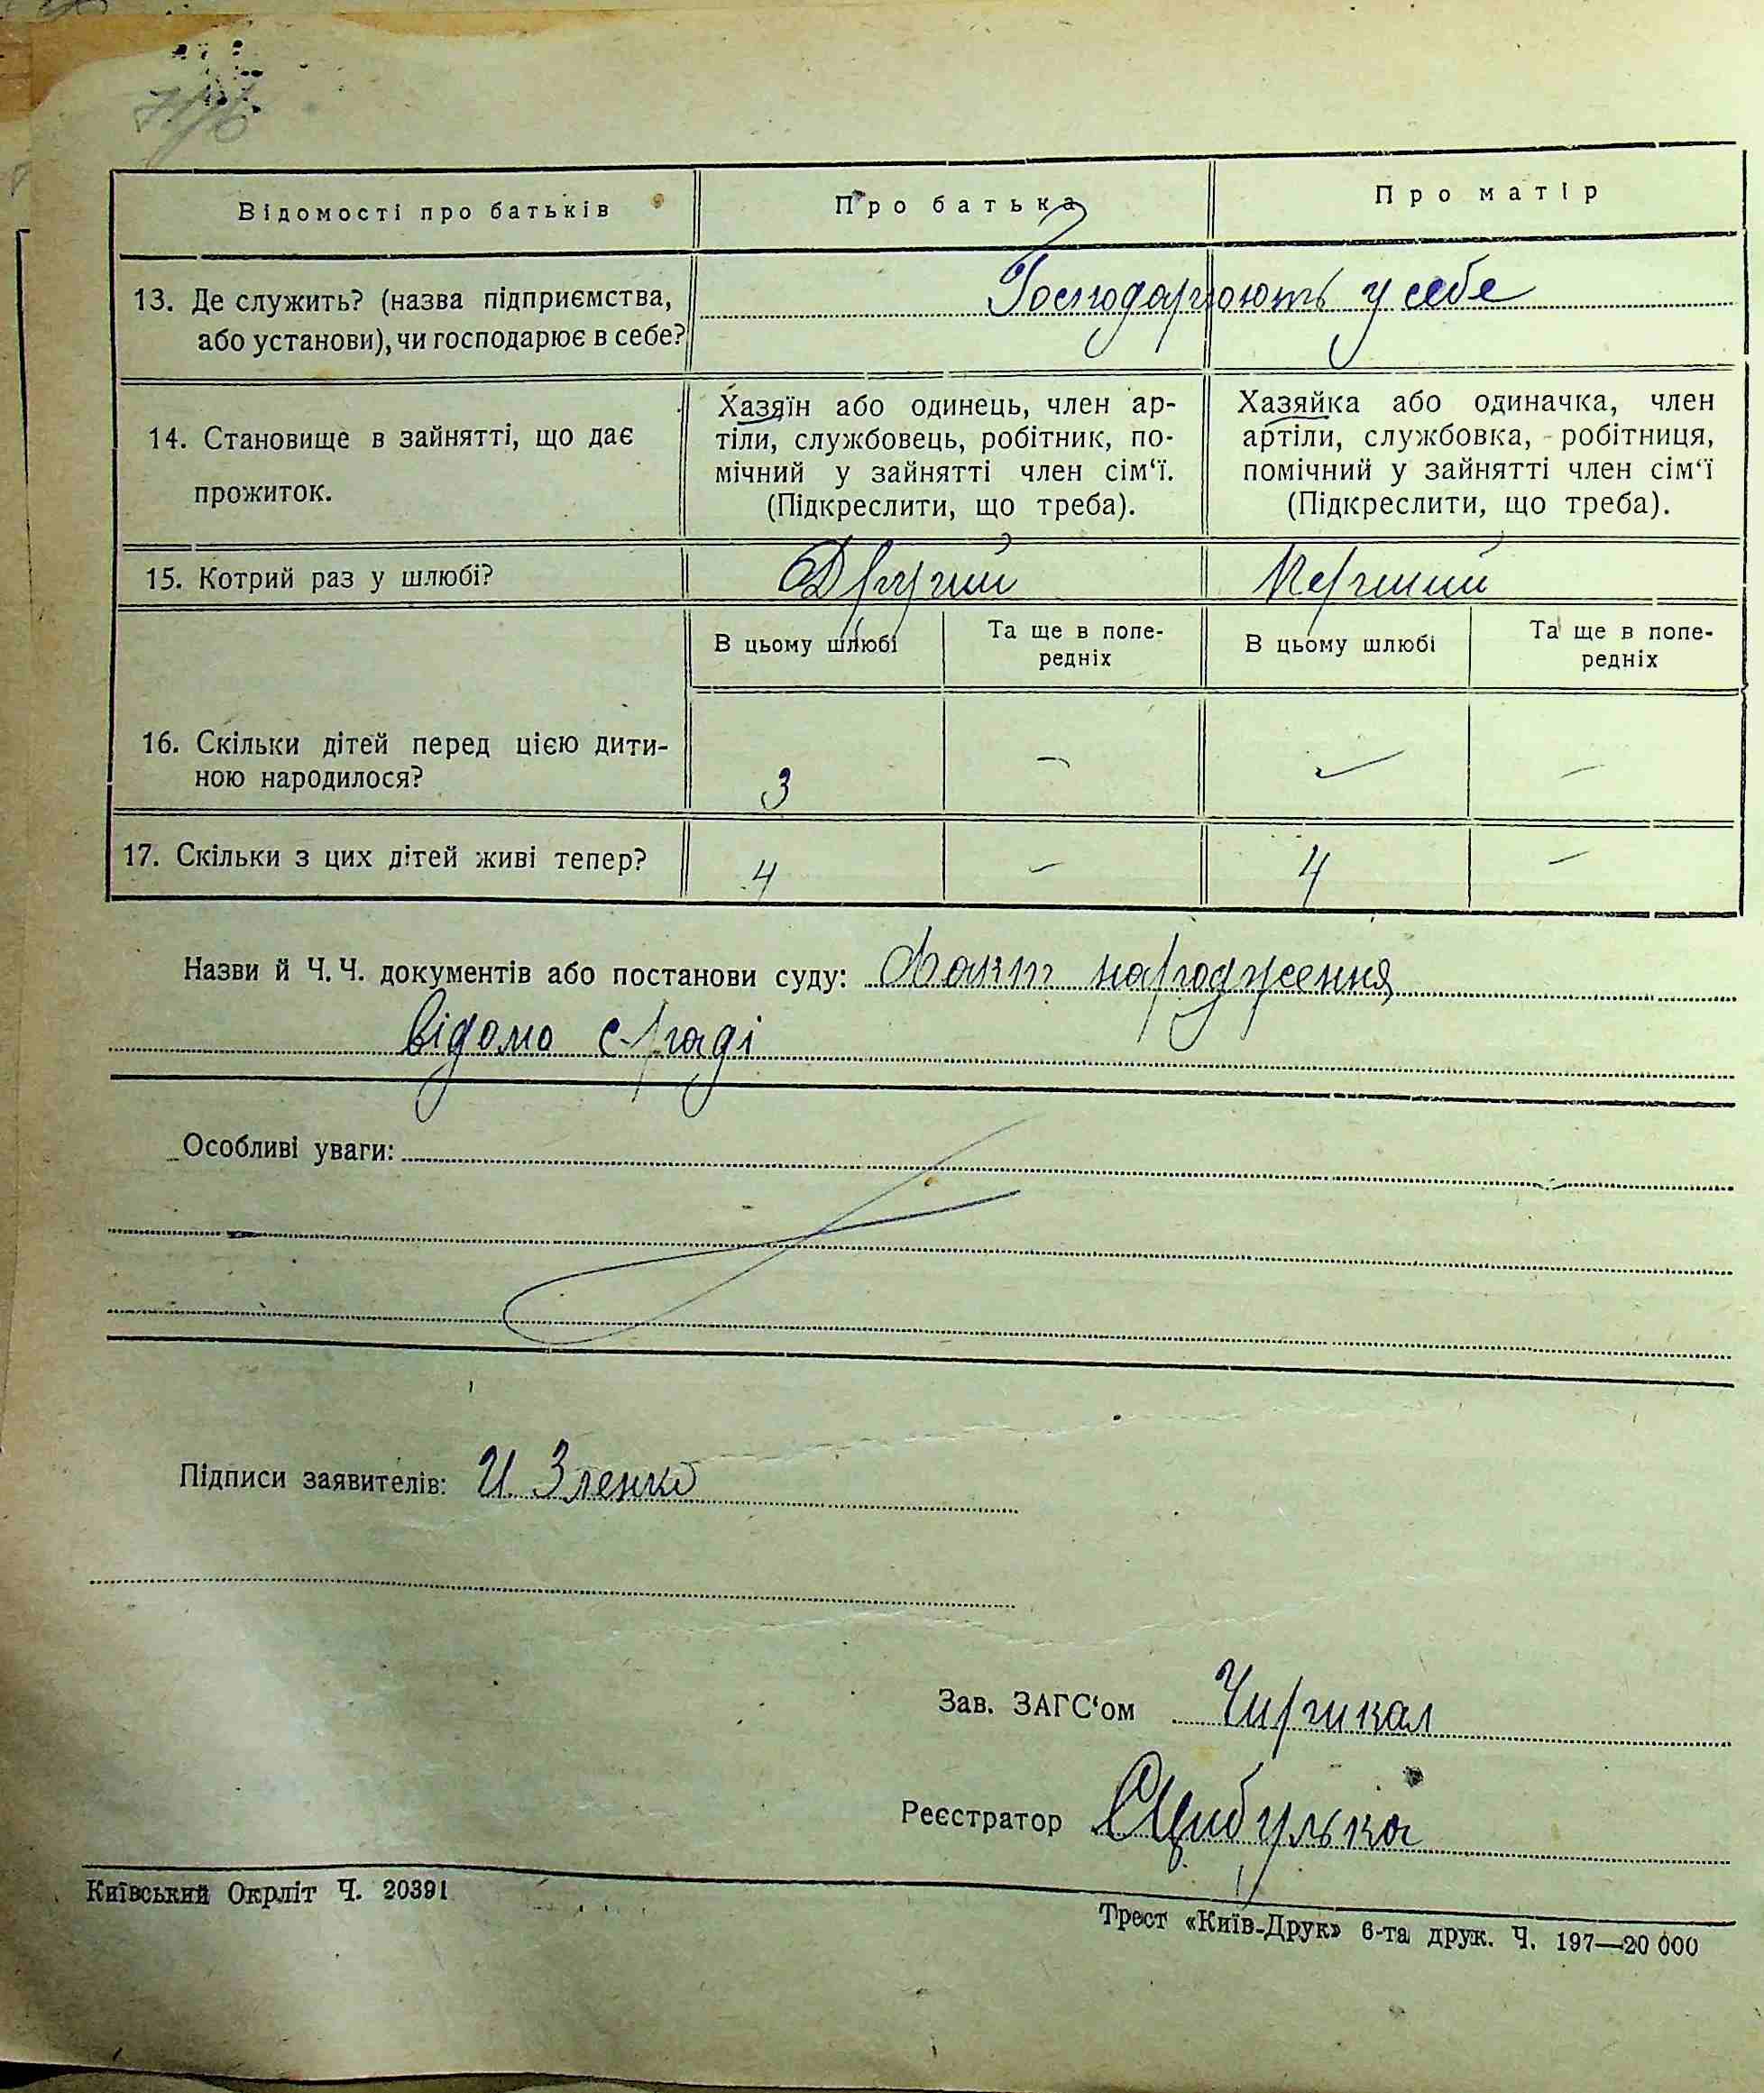 Відомості про батьків
Про батька
Про матір
13. Де служить? (назва підприємства,
або установи), чи господарює в себе?
Господарюють у себе
14. Становище в зайнятті, що дає
прожиток.
Хазяїн або одинець, член ар-
тіли, службовець, робітник, по-
мічний у зайнятті член сім‘ї.
(Підкреслити, що треба).
Хазяйка або одиначка, член
артіли, службовка, робітниця,
помічний у зайнятті член сім‘ї
(Підкреслити, що треба).
15. Котрий раз у шлюбі?
Другий
Перший
В цьому шлюбі
Та ще в попе-
редніх
В цьому шлюбі
Та ще в попе-
редніх
16. Скільки дітей перед цією дити-
ною народилося?
3 — — —
17. Скільки з цих дітей живі тепер?
4 — 4 —
Назви й Ч. Ч. документів або постанови суду: Факт народження
відомо с-раді
Особливі уваги:
Підписи заявителів: И. Зленко
Зав. ЗАГС‘ом Чирикал
Реєстратор ЄЦибулька
Київський Окрліт Ч. 20391
Трест «Київ-Друк» 6-та друк. Ч. 197—20 000